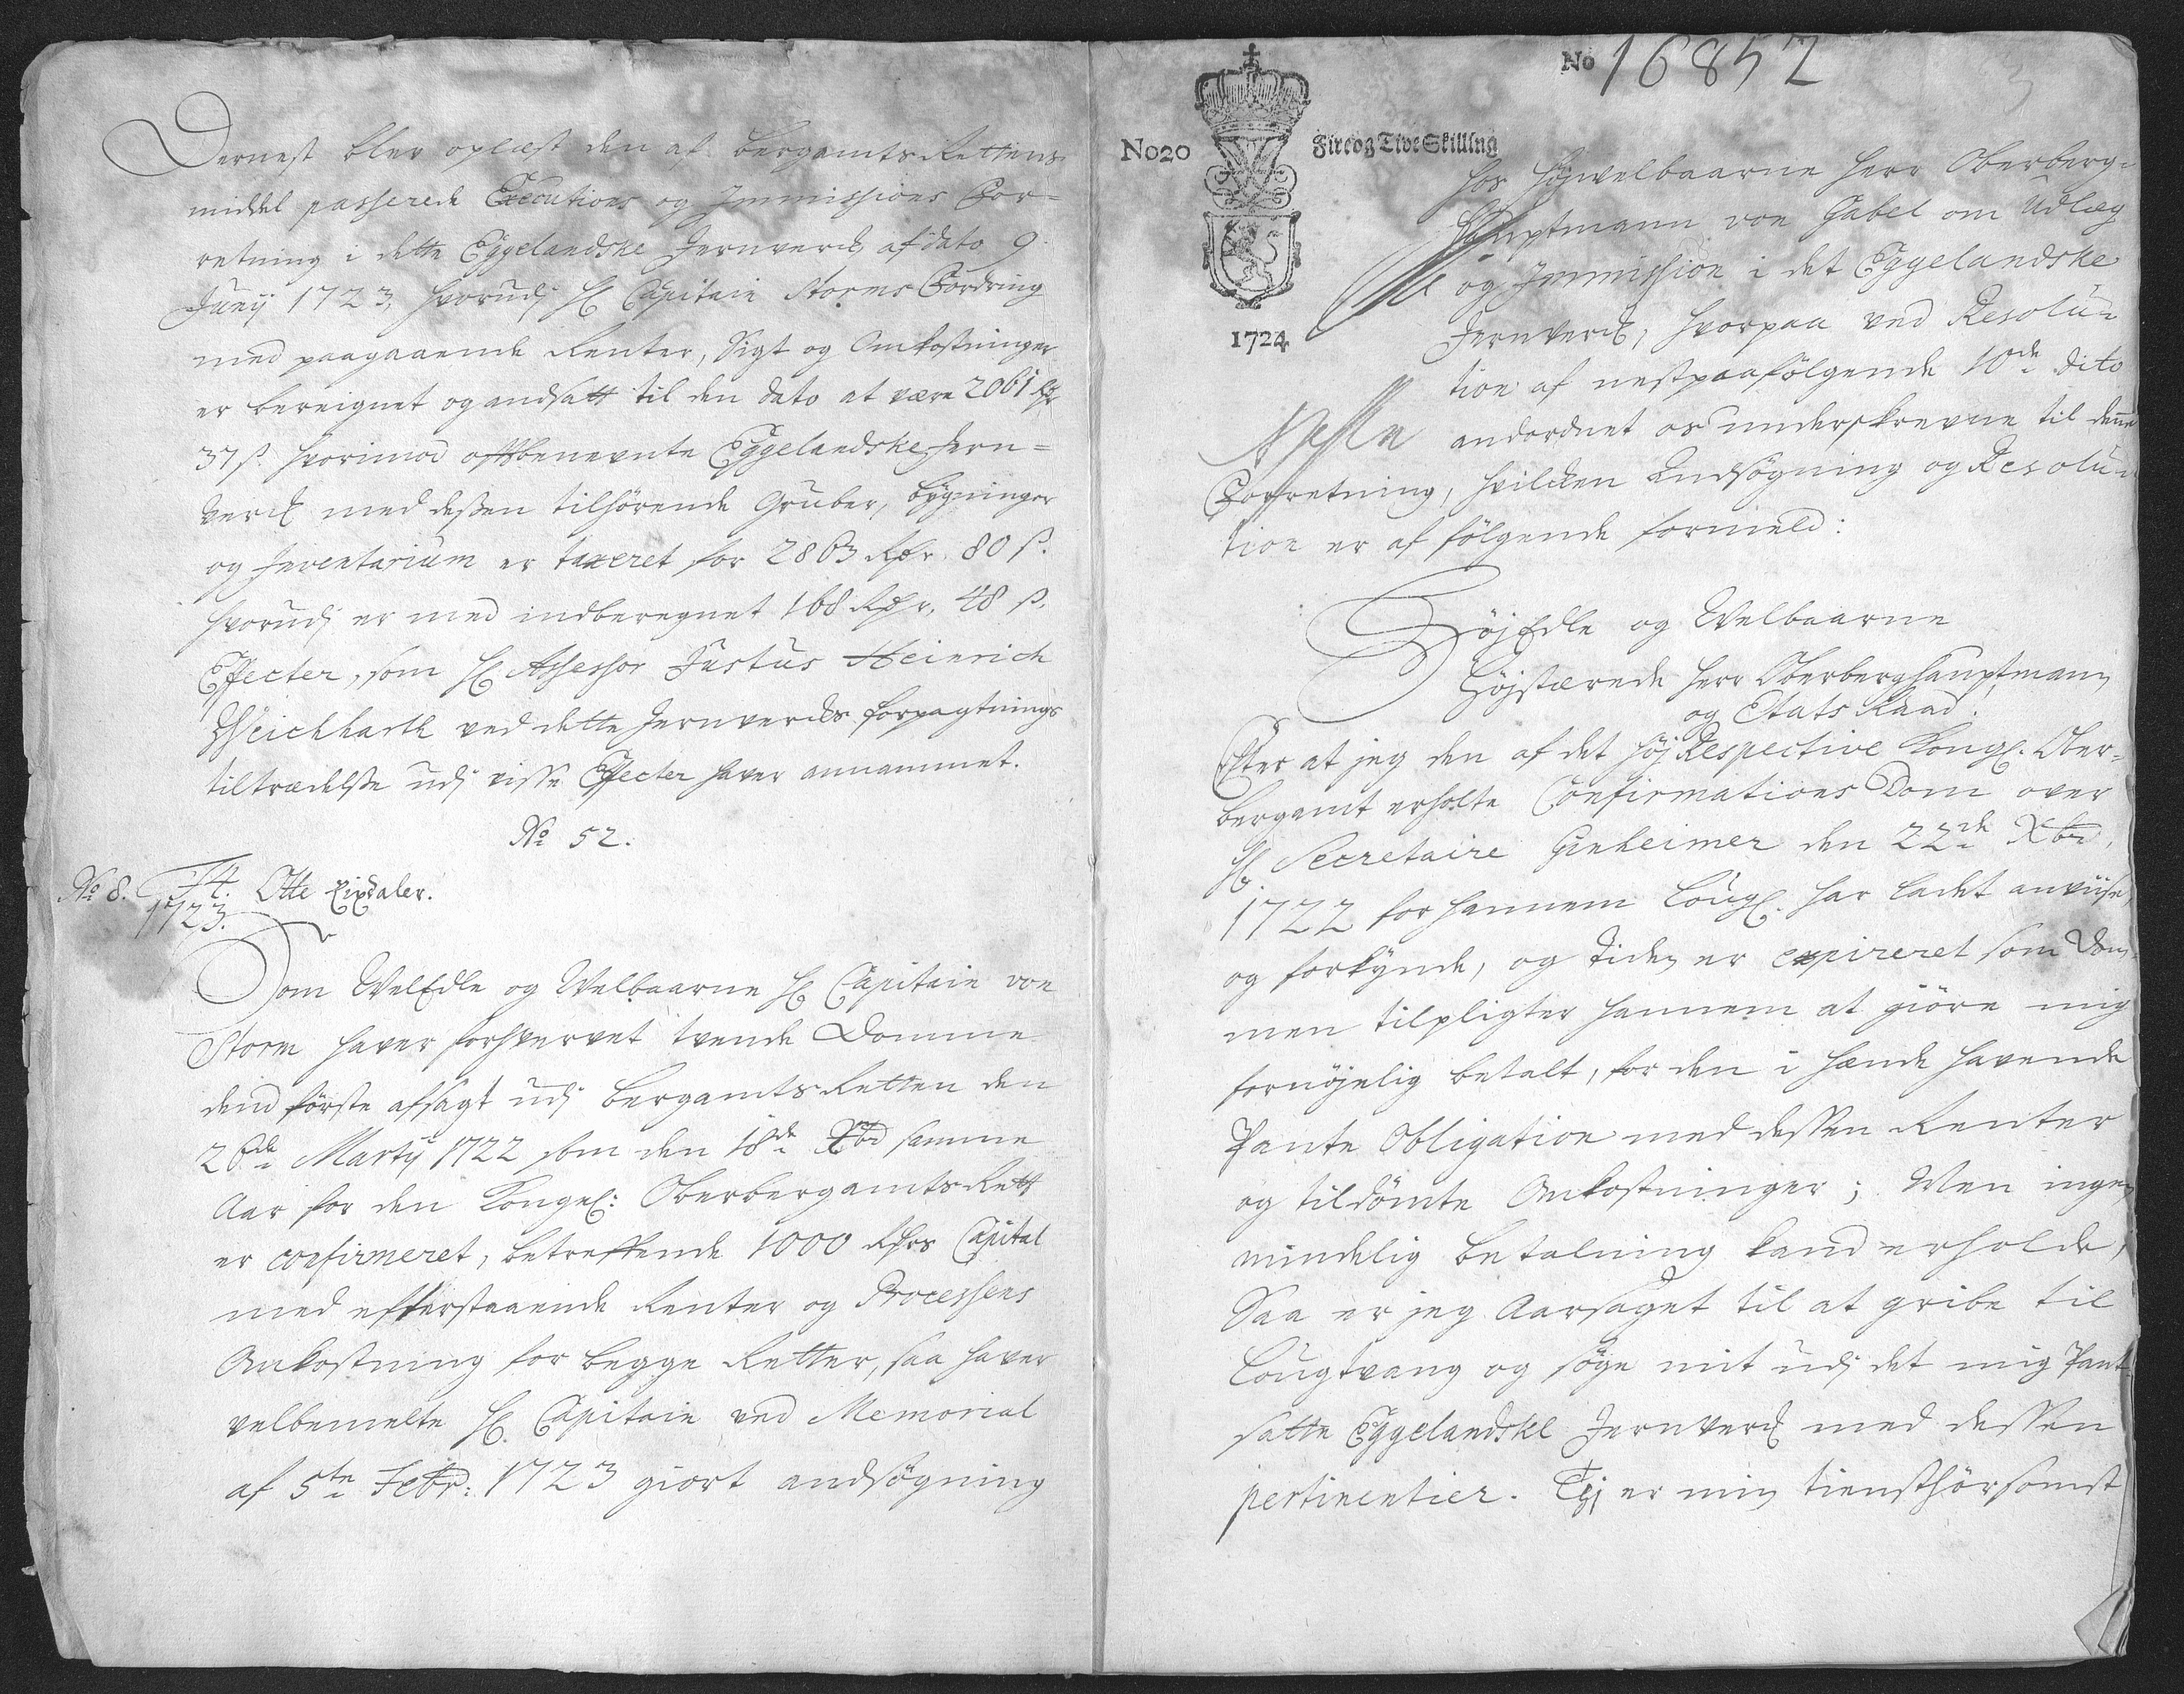 Dernest blev oplæst den af Bergamts Rettens
middel passerede Executions og Immissions For=
retning i dette Eggelandske Jernverck af dato 9
Junij 1723, hvorudj H. Capitain Storms Fordring
med paagaaende Renter, Sigt og Omkostninger
er bereignet og andsatt til den dato at være 2061 Rdr
37 s. hvorimod oftbenevnte Eggelandske Jern=
Verck med dessen tilhörende Gruber, bygninger
og Inventarium er taxeret for 2863 Rdr. 80 s.
hvorudj er med indberegnet 168 Rdr. 48 s.
Effecter, som H. Assessor Justus Heinrich
Weichhardt ved dette Jernvercks forpagtnings
tiltrædelse udj visse Effecter haver annammet.
No 52.
No 8. 14. Otte Rixdaler.
1723.
Som WelEdle og Welbaarne H. Capitain von
Storm haver forhvervet tvende Domme
dend förste afsagt udj Bergamts Retten den
26de Martij 1722 som den 18de Xbr samme
Aar for den Kongel: Oberbergamts Rett
er confirmeret, betreffende 1000 Rdrs Capital
med efterstaaende Renter og Processens
Omkostning for begge Retter, saa haver
velbemelte H. Capitain ved Memorial
af 5te Febr: 1723 giort andsögning
No 16852
No20
Fire og Tive Skilling
1724
hos Höjwelbaarne Herr Oberberg=
Hauptmann von Gabel om Udlæg
og Immission i det Eggelandske
Jernverck, hvorpaa ved Resolu=
tion af nestpaafölgende 10de dito
andordnet os underskrevne til denne
Forretning, hvilcken Andsögning og Resolu=
tion er af fölgende formeld:
HöjEdle og Welbaarne
Höjstærede Herr Oberberghauptmann
og Etats Raad.
Efter at jeg den af det höj Respective Kongl. Ober=
bergamt erholte Confirmations Dom over
H. Secretaire Ginheimer den 22de Xbr,
1722 for hannem Lougl. har ladet anviise
og forkynde, og tiden er expireret som Dom=
men tilpligter hannem at giöre mig
fornöjelig betalt, for den i hænde havende
Pante Obligation med dessen Renter
og tildömte Omkostninger; Men ingen
mindelig betalning kand erholde,
Saa er jeg Aarsaget til at gribe til
Lougtvang og söge mit udj det mig Pant
satte Eggelandske Jernverck med dessen
pertinentier. Thj er min tiensthörsomst